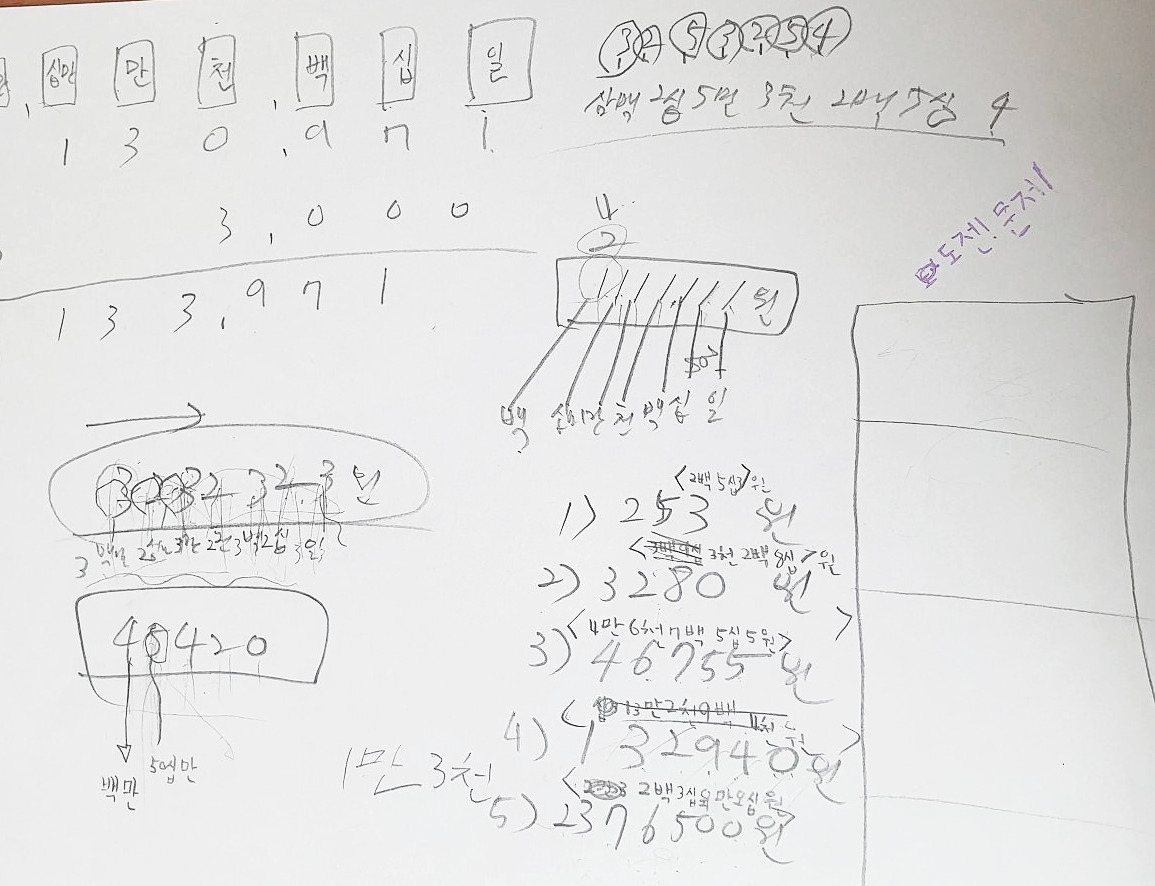 십만 만 천 백 십 일
1 3 0 , 9 7 1
3 , 0 0 0
1 3 3 , 9 7 1
3253254
삼백 2십 5만 3천 2백 5십 4
도젠! 문제!
4
2
원
백 십만 천 백 십 일
3 2 3 2 3 2 3 원
3백만 2십만 3만 2천 3백 2십 3일
45420
백만 5십만
1만 3천
<2백 5십3>원
1) 253 원
<3천 2백 8십>원
2) 3280 원
<4만 6천 7백 5십 5원>
3) 46755 원
<13만 2천 9백
4) 132940원
<2백 3십 만 오십 원
5) 2376500원